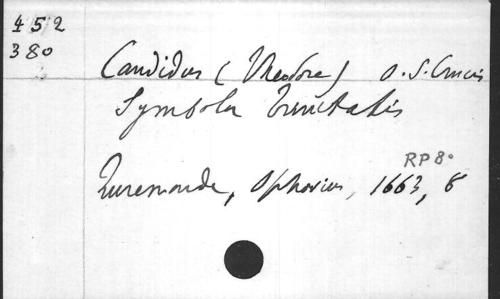 452
380
Candidus (Theodore) O. S. Crucis
Symbola Trinitatis
RP 8°
Ruremonde, Ophovius, 1663, 8